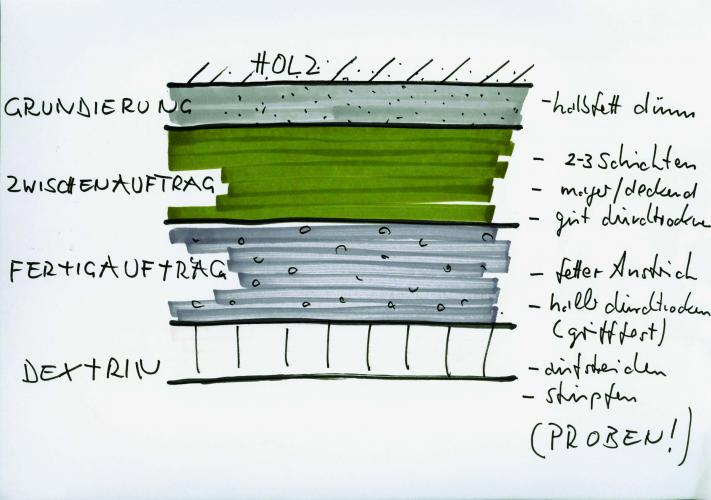 HOLZ
GRUNDIERUNG
- halbfett dünn
ZWISCHENAUFTRAG
- 2-3 Schichten
- mager/deckend
- gut durchtrocknen
FERTIGAUFTRAG
- fetter Anstrich
- halb durchtrocknen
(grifffest)
DEXTRIN
- aufstreichen
- stupfen
(PROBEN!)